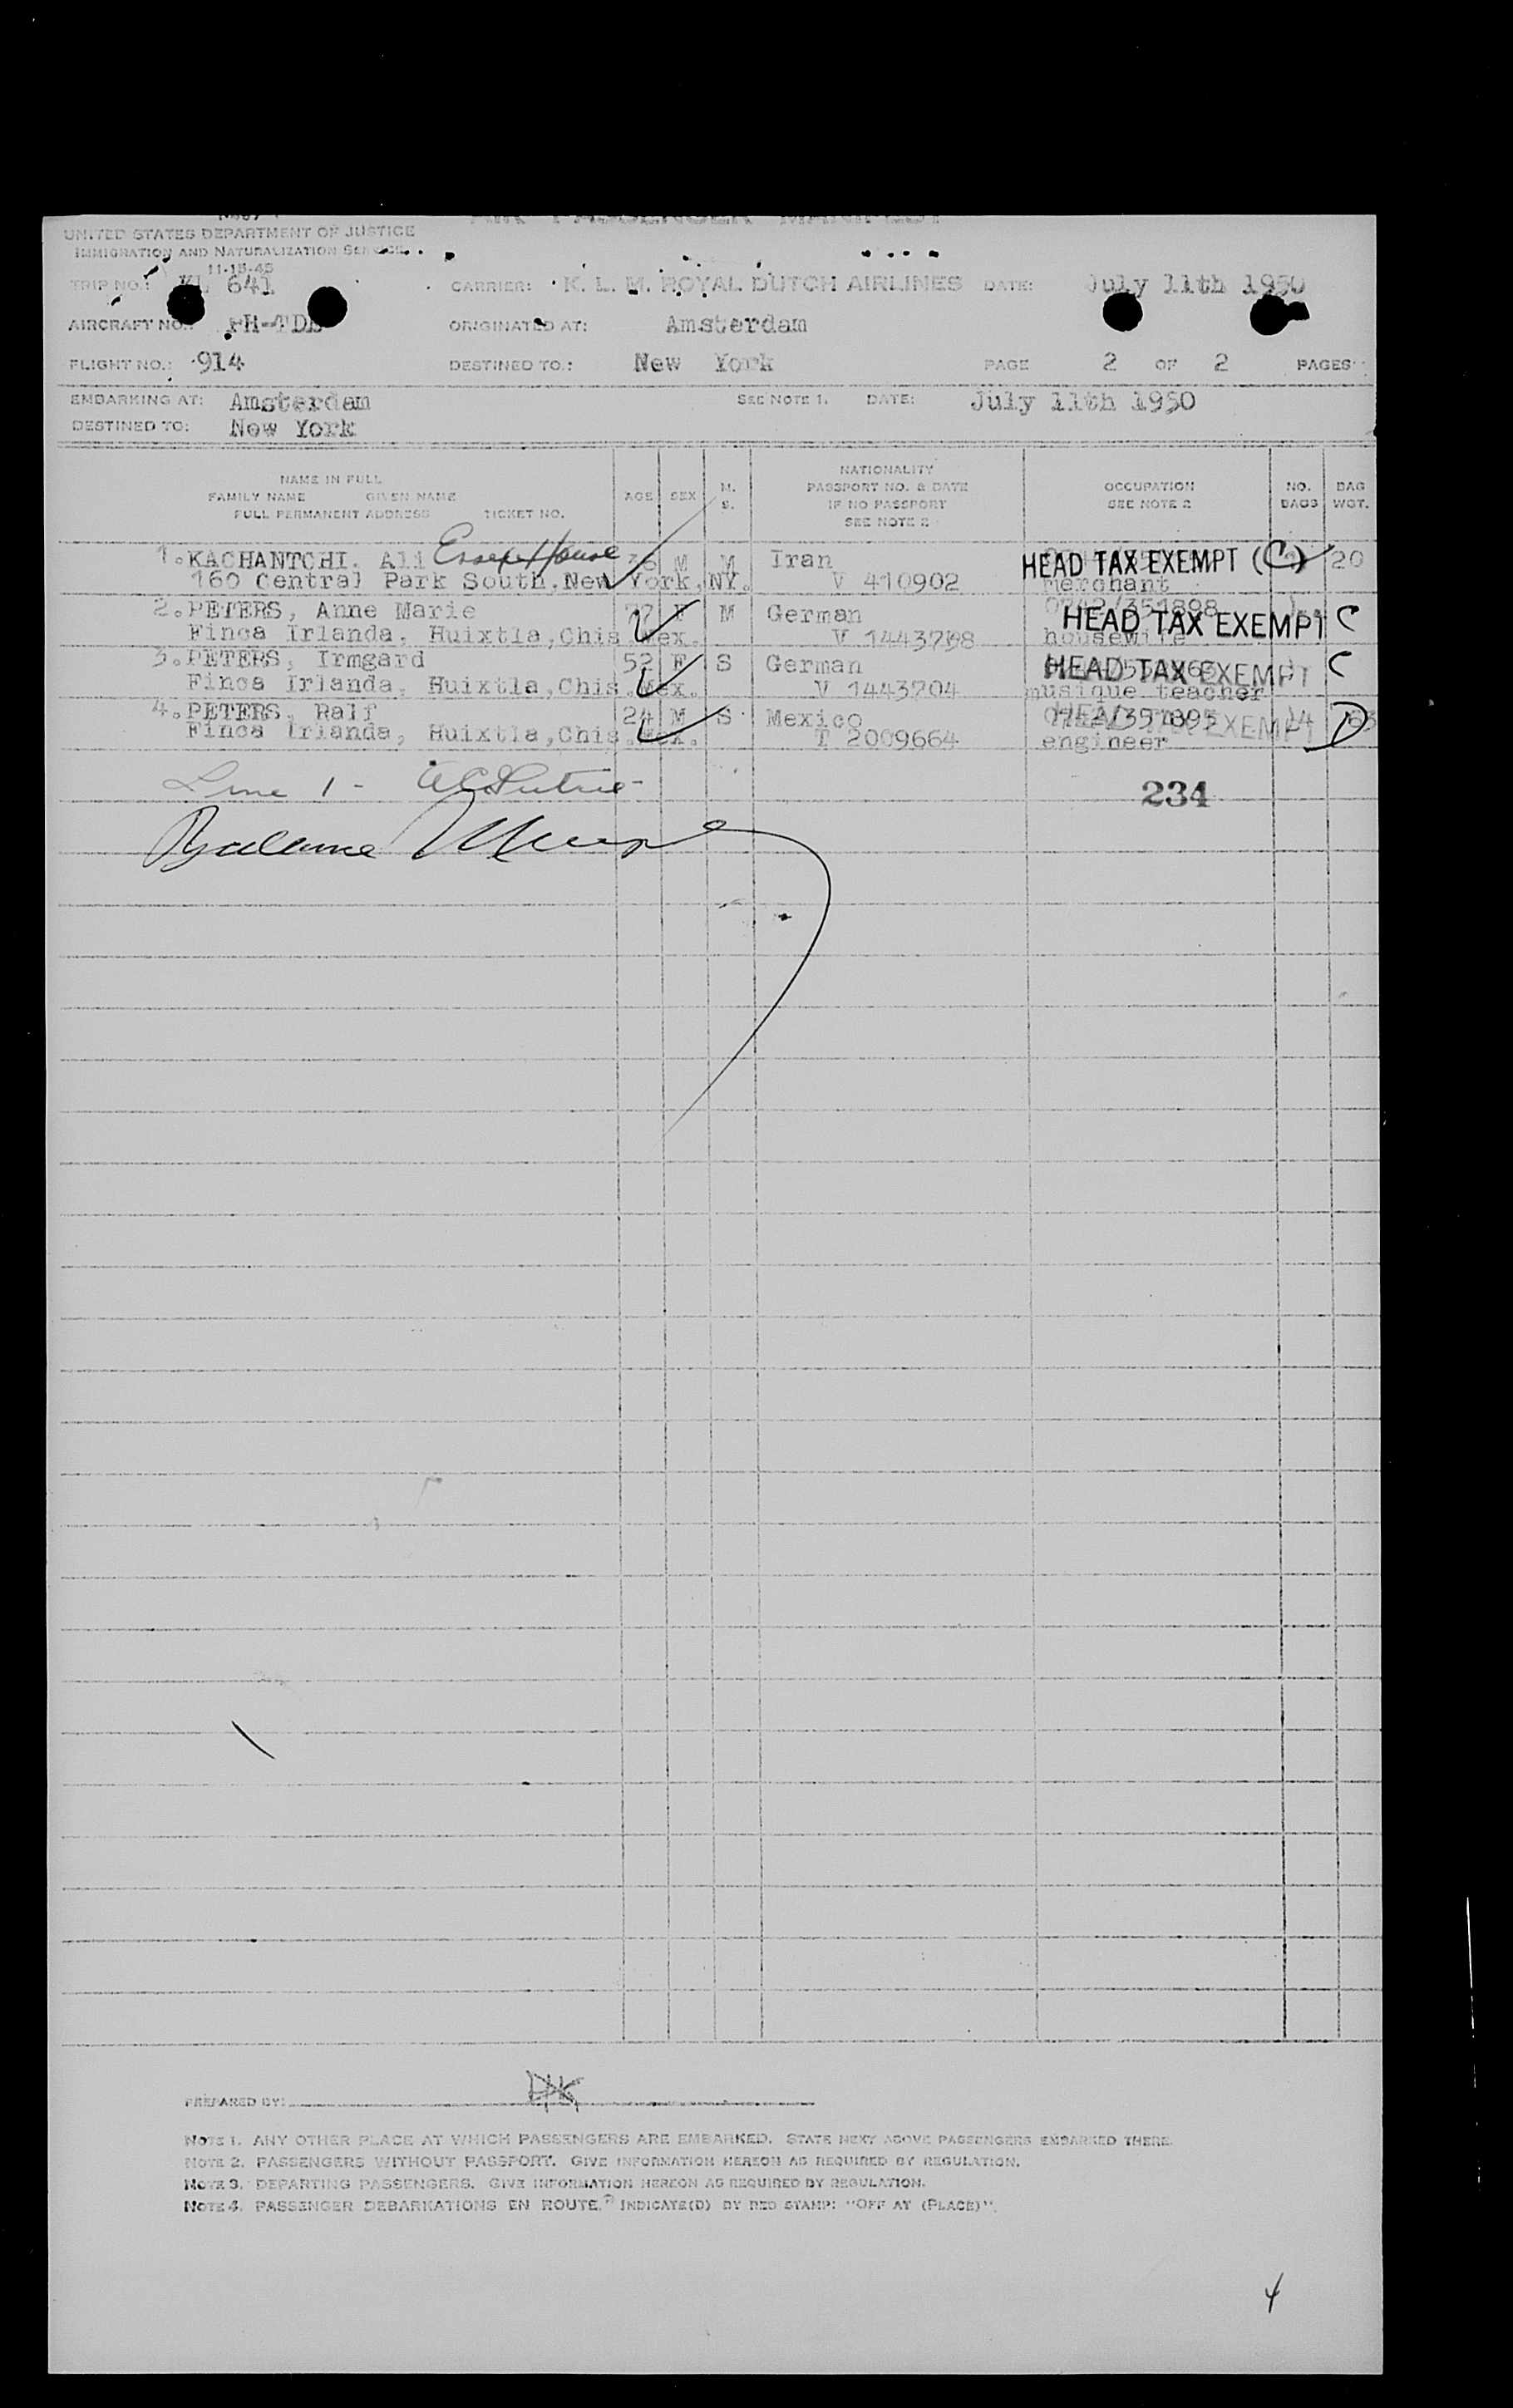 UNITED STATES DEPARTMENT OF JUSTICE
IMMIGRATION AND NATURALIZATION SERVICE
11-15-45
TRIP NO.: KL 641 CARRIER: K. L. M. ROYAL DUTCH AIRLINES DATE: July 11th 1950
AIRCRAFT NO.: ORIGINATED AT: Amsterdam
FLIGHT NO.: 914 DESTINED TO.: New York PAGE 2 OF 2 PAGES
EMBARKING AT: Amsterdam SEE NOTE 1. DATE: July 11th 1950
DESTINED TO: New York
NAME IN FULL
FAMILY NAME GIVEN NAME
FULL PERMANENT ADDRESS TICKET NO.
AGE SEX M. S.
NATIONALITY
PASSPORT NO. & DATE
IF NO PASSPORT
SEE NOTE 2
OCCUPATION
SEE NOTE 2
NO. BAGS
BAG WGT.
1. KACHANTCHI, Ali Essex House M M Iran HEAD TAX EXEMPT (C) 20
160 Central Park South, New York, NY. V 410902 merchant
2. PETERS, Anne Marie 77 F M German 0742/351898 HEAD TAX EXEMPT C
Finca Irlanda, Huixtla, Chis. Mex. housewife
3. PETERS, Irmgard 52 F S German HEAD TAX EXEMPT C
Finca Irlanda, Huixtla, Chis. Mex. V 1443704 musique teacher
4. PETERS, Ralf 24 M S Mexico HEAD TAX EXEMPT 14 D
Finca Irlanda, Huixtla, Chis. Mex. T 2009664 engineer
Line 1 -
234
Balance
PREPARED BY:
NOTE 1. ANY OTHER PLACE AT WHICH PASSENGERS ARE EMBARKED. STATE NEXT ABOVE PASSENGERS EMBARKED THERE.
NOTE 2. PASSENGERS WITHOUT PASSPORT. GIVE INFORMATION HEREON AS REQUIRED BY REGULATION.
NOTE 3. DEPARTING PASSENGERS. GIVE INFORMATION HEREON AS REQUIRED BY REGULATION.
NOTE 4. PASSENGER DEBARKATIONS EN ROUTE. INDICATE(D) BY RED STAMP: "OFF AT (PLACE)".
4